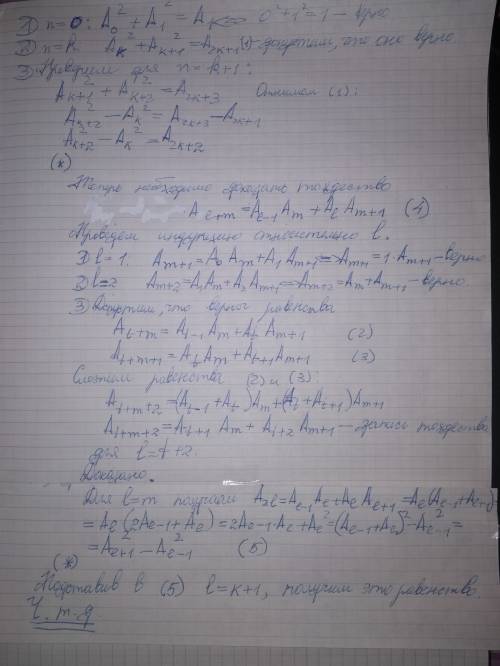 1) n=0: A₀² + A₁² = A₁ <=> 0²+1²=1 – верно
2) n=k. A_k² + A_{k+1}² = A_{2k+1} (1) – допустим, что оно верно.
3) Проверим для n=k+1:
A_{k+1}² + A_{k+2}² = A_{2k+3} Отнимем (1):
A_{k+2}² – A_k² = A_{2k+3} – A_{2k+1}
A_{k+2}² – A_k² = A_{2k+2}
(*)
Теперь необходимо доказать тождество
A_{l+m} = A_{l-1} A_m + A_l A_{m+1} (4)
Проведем индукцию относительно l.
1) l=1. A_{m+1} = A₀ A_m + A₁ A_{m+1} <=> A_{m+1} = 1·A_{m+1} – верно
2) l=2 A_{m+2} = A₁ A_m + A₂ A_{m+1} <=> A_{m+2} = A_m + A_{m+1} – верно.
3) Допустим, что верны равенства
A_{t+m} = A_{t-1} A_m + A_t A_{m+1} (2)
A_{t+m+1} = A_t A_m + A_{t+1} A_{m+1} (3)
Сложим равенства (2) и (3):
A_{t+m+2} = (A_{t-1} + A_t) A_m + (A_t + A_{t+1}) A_{m+1}
A_{t+m+2} = A_{t+1} A_m + A_{t+2} A_{m+1} – запись тождества
для l=t+2.
Доказано.
Для l=m получим A_{2l} = A_{l-1} A_l + A_l A_{l+1} = A_l (A_{l-1} + A_{l+1}) =
= A_l (2A_{l-1} + A_l) = 2A_{l-1} · A_l + A_l² = (A_{l-1} + A_l)² – A_{l-1}² =
= A_{l+1}² – A_{l-1}² (5)
(*)
Подставив в (5) l=k+1, получим это равенство.
Ч.т.д